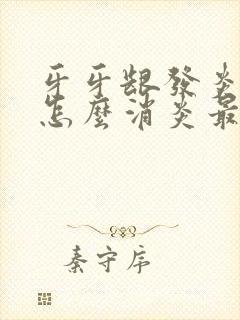 牙牙龈發炎
怎麼消炎最
秦守序